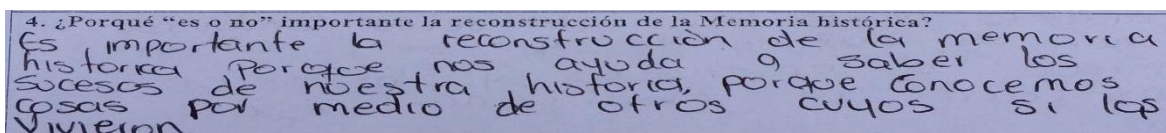 4. ¿Porqué “es o no” importante la reconstrucción de la Memoria histórica?
Es importante la reconstrucción de la memoria
historica Porque nos ayuda a saber los
sucesos de nuestra historia, porque conocemos
cosas por medio de otros cuyos si las
vivieron